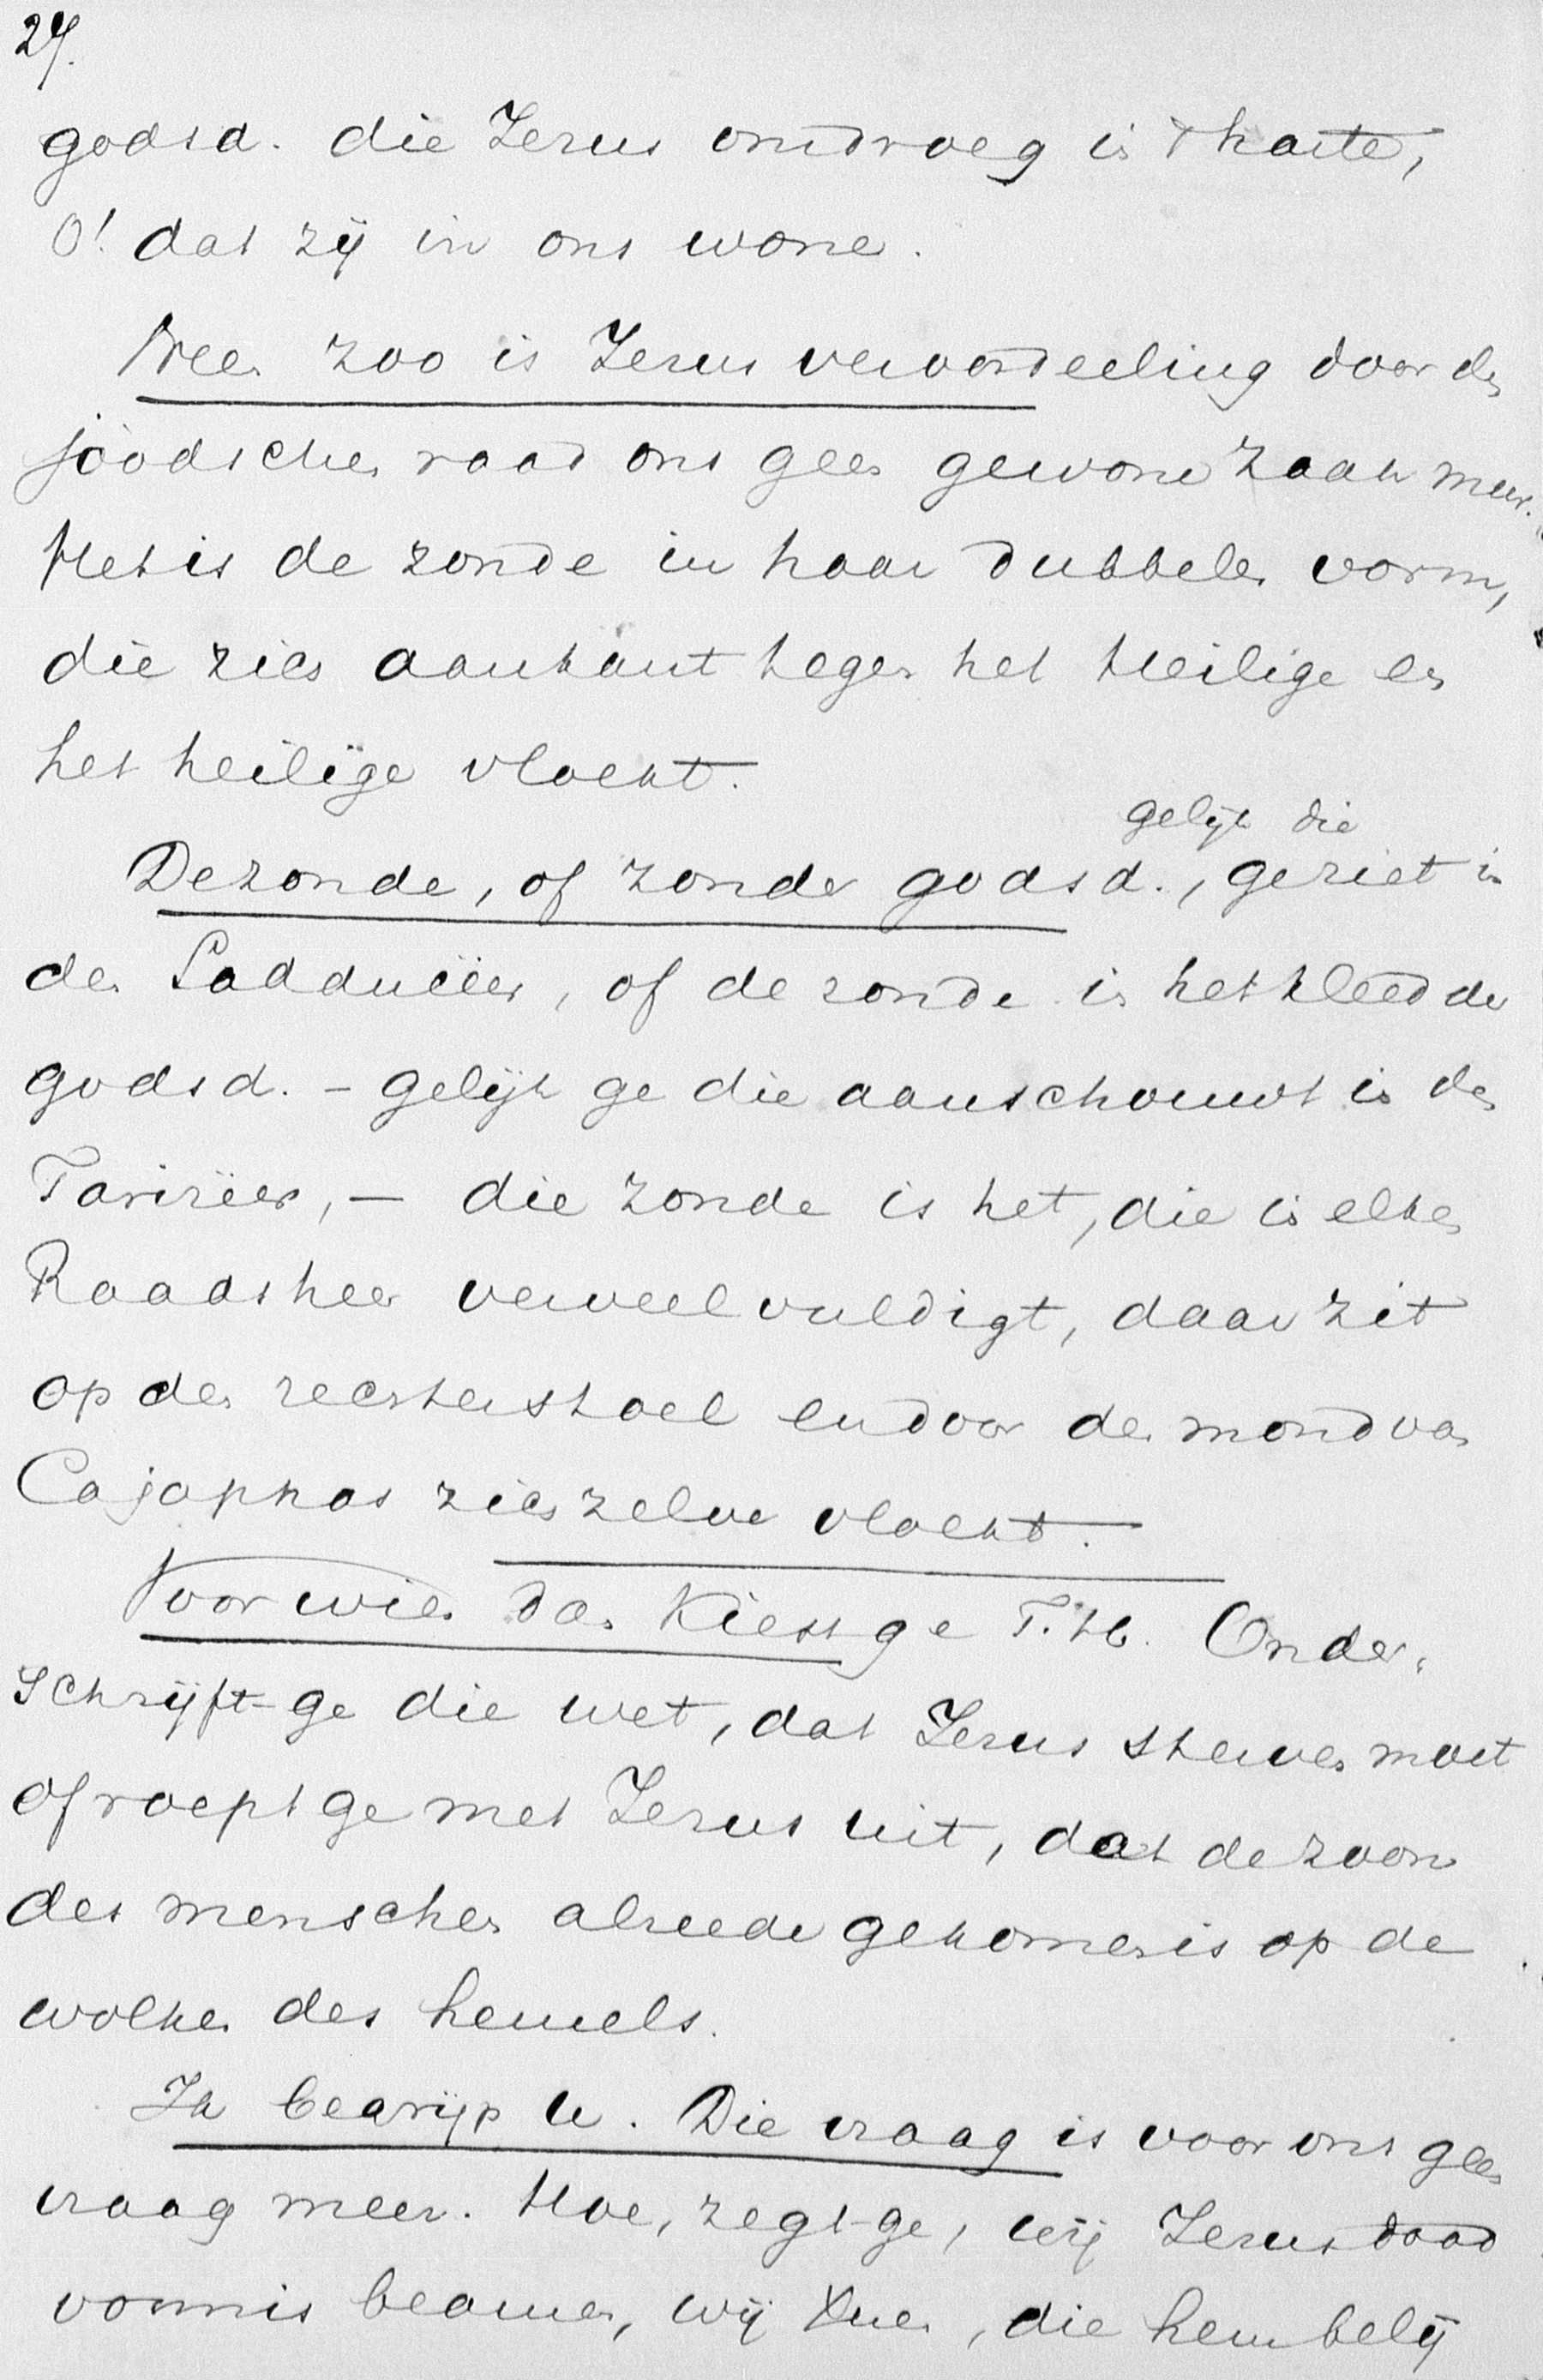 24.
godsd. die Jezus omdroeg in 't harte,
O! dat zij in ons wone.
Neen zoo is Jezus veroordeeling door den
joodschen raad ons geen gewone zaak meer.
Het is de zonde in haar dubbelen vorm,
die zich aankant tegen het Heilige en
het heilige vloekt.
gelijk die
De zonde, of zonder godsd., ge ziet in
den Sadduceër, of de zonde in het kleed der
godsd. – gelijk ge die aanschouwt in den
Farizeër, – die zonde is het, die in elken
Raadsheer verveelvuldigt, daar zit
op den rechterstoel en door den mond van
Cajaphas zich zelve vloekt.
Voor wien dan Kiest ge T. H. Onder-
schrijft-ge die wet, dat Jezus sterven moet
of roept ge met Jezus uit, dat de zoon
des menschen alreede gekomen is op de
wolken des hemels.
Ik begrijp U. Die vraag is voor ons geen
vraag meer. Hoe, zegt-ge, wij Jezus dood
vonnis beamen, wij Xnen, die hem belij